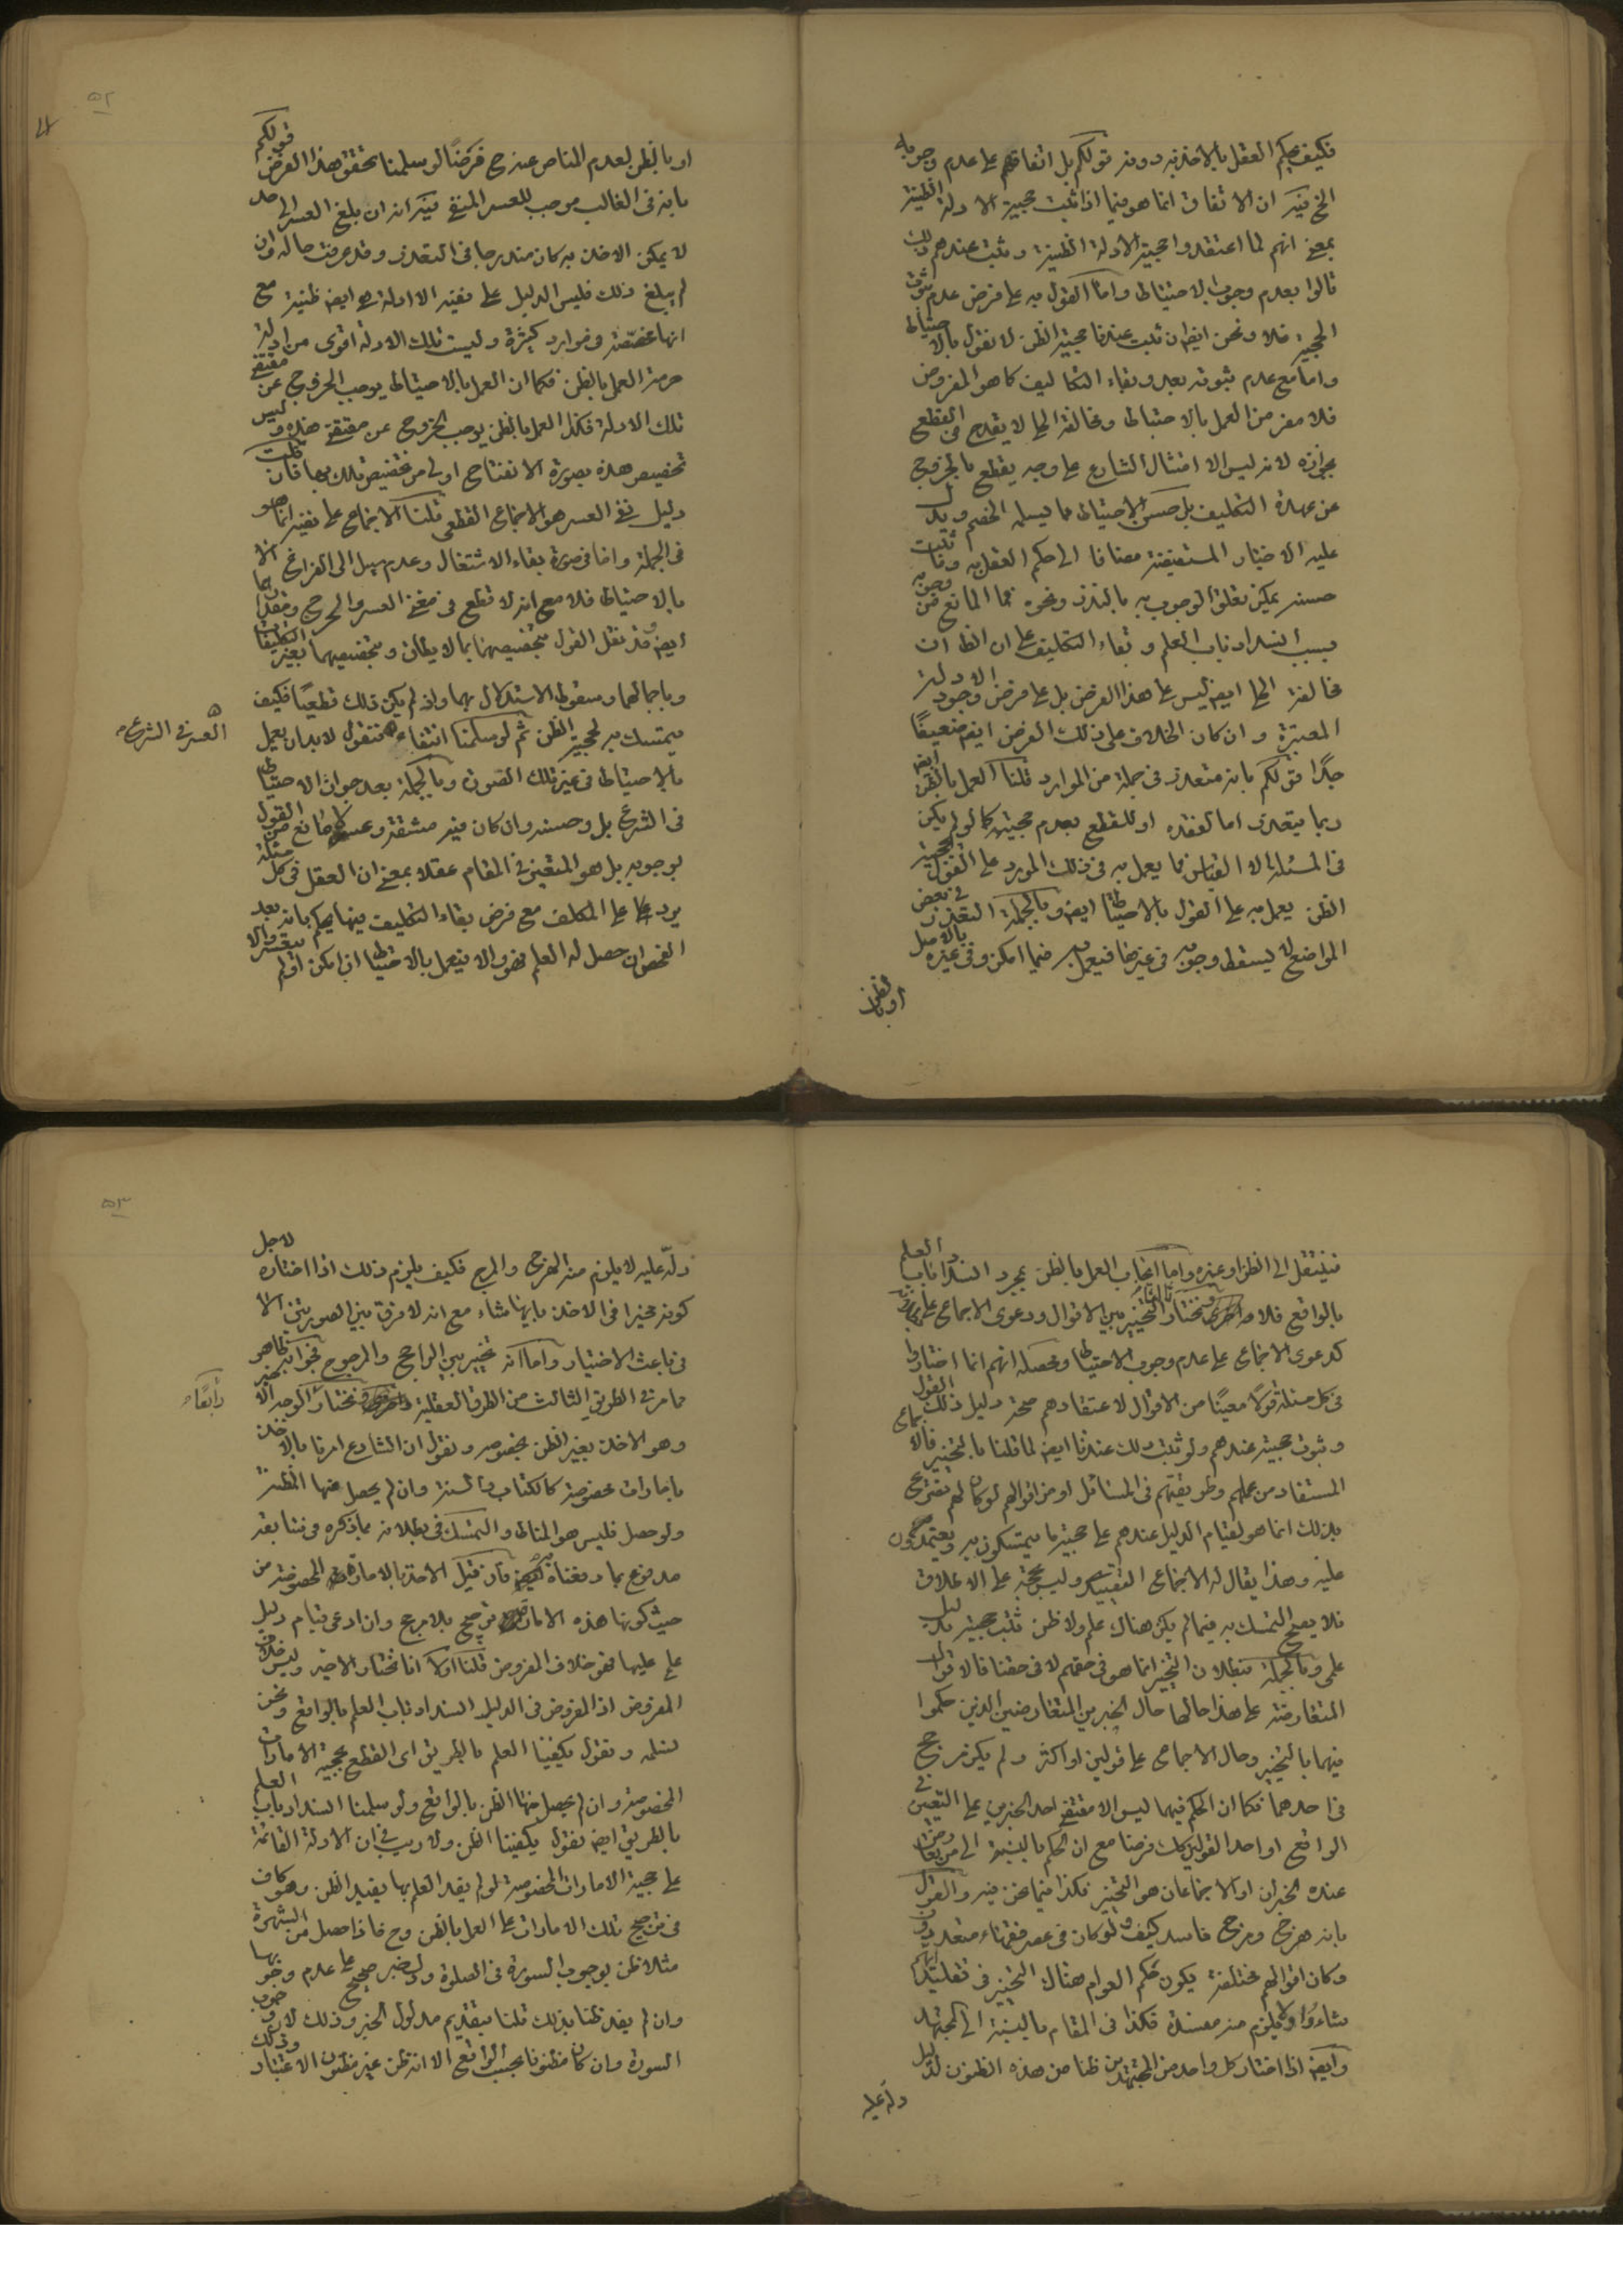 فكيف يحكم العقل بالاخذ به دونه قولكم بل اتفاقهم على عدم وجوبه
الخ فيه ان الاتفاق انما هو فيما اذا ثبت حجية الادلة الظنية
بمعنى انهم لما اعتقدوا حجية الادلة الظنية وثبت عندهم ذلك
قالوا بعدم وجوب الاحتياط واما القول به على فرض عدم ثبوت
الحجية فلا ونحن ايضا ان ثبت عندنا حجية الظن لا نقول بالاحتياط
واما مع عدم ثبوته بعد وبقاء التكاليف كما هو المفروض
فلا مفر من العمل بالاحتياط ومخالفة الحلى لا يقدح فى القطع
بجوازه لانه ليس الا امتثال الشارع على وجه يقطع بالخروج
عن عهدة التكليف بل حسن الاحتياط مما يسلمه الخصم ويدل
عليه الاخبار المستفيضة مضافا الى حكم العقل به وما ثبت
حسنه يمكن تعلق الوجوب به بالنذر ونحوه فما المانع من وجوبه
بسبب انسداد باب العلم وبقاء التكليف على ان الظ ان
مخالفة الحلى ايضا ليس على هذا الفرض بل على فرض وجود الادلة
المعتبرة وان كان الخلاف على ذلك الفرض ايضا ضعيفًا
جدًا قولكم بانه متعذر فى جملة من الموارد قلنا العمل بالظن ايضا
ربما يتعذر اما لفقده او للقطع بعدم حجيته كما لو لم يكن
فى المسئلة الا القياس فما يعمل به فى ذلك المورد على القول بحجية
الظن يعمل به على القول بالاحتياط ايضا وبالجملة التعذر فى بعض
المواضع لا يسقط وجوبه فى غيرها فيعمل به فيما امكن وفى غيره بالاصل
او بالظن
او بالظن لعدم المناص عنه ح فرضًا لو سلمنا تحقق هذا الفرض قولكم
بانه فى الغالب موجب للعسر المنفى فيه انه ان بلغ العسر الى حد
لا يمكن الاخذ به كان مندرجا فى التعذر وقد عرفت حاله وان
لم يبلغ ذلك فليس الدليل على نفيه الا ادلة هى ايضا ظنية مع
انها مخصصة فى موارد كثيرة وليست تلك الادلة اقوى من ادلة
حرمة العمل بالظن فكما ان العمل بالاحتياط يوجب الخروج عن مقتضى
تلك الادلة فكذا العمل بالظن يوجب الخروج عن مقتضى هذه وليس
تخصيص هذه بصورة الانفتاح اولى من تخصيص تلك بها فان قلت
دليل نفى العسر هو الاجماع القطعى قلنا الاجماع على نفيه انما هو
فى الجملة واما فى صورة بقاء الاشتغال وعدم سبيل الى الفراغ الا
بالاحتياط فلا مع انه لا قطع فى معنى العسر والحرج
ايضا وقد نقل القول بتخصيصهما بما لا يطاق وبتخصيصهما بغير التكليفات
وباجمالهما وسقوط الاستدلال بهما واذ لم يكن ذلك قطعيًا فكيف
يتمسك به لحجية الظن ثم لو سلمنا انتفاء فنقول لا بد ان يعمل
العسر فى الشرع
بالاحتياط فى غير تلك الصورة وبالجملة بعد جواز الاحتياط
فى الشرع بل وحسنه وان كان فيه مشقة وعسر لا مانع من القول
بوجوبه بل هو المتعين فى المقام عقلا بمعنى ان العقل فى كل مسئلة
يرد على المكلف مع فرض بقاء التكليف فيها يحكم بانه بعد
الفحص ان حصل له العلم فهو والا فيعمل بالاحتياط ان امكن او لم يتعسر والا
فينتقل الى الظن او غيره واما ايجاب العمل بالظن بمجرد انسداد باب العلم
بالواقع فلا ونختار التخيير بين الاقوال ودعوى الاجماع على
كدعوى الاجماع على عدم وجوب الاحتياط ومحصله انهم انما اختاروا
فى كل مسئلة قولا معينًا من الاقوال لاعتقادهم صحة دليل ذلك القول
وثبوت حجيته عندهم ولو ثبت ذلك عندنا ايضا لما قلنا بالتخيير فالاجماع
المستفاد من عملهم وطريقتهم فى المسائل او من اقوالهم لو كان لهم تصريح
بذلك انما هو لقيام الدليل عندهم على حجية ما يتمسكون به ويعتمدون
عليه وهذا يقال له الاجماع التقييدى وليس بحجة على الاطلاق
فلا يصح التمسك به فيما لم يكن هناك علم ولا ظن ثبت حجيته بدليل
علمى وبالجملة فبطلان التخيير انما هو فى حقهم لا فى حقنا فالاقوال
المتعارضة على هذا حالها حال الخبرين المتعارضين الذين حكموا
فيهما بالتخيير وحال الاجماع على قولين او اكثر ولم يكن مرجح
فى احدهما فكما ان الحكم فيهما ليس الا مقتضى احد الخبرين على التعيين فى
الواقع او احد القولين كك فرضا مع ان الحكم بالنسبة الى من تعارض
عنده الخبران او الاجماعان هو التخيير فكذا فيما نحن فيه والقول
بانه هرج ومرج فاسد كيف ولو كان فى عصر فقهاء متعددون
وكان اقوالهم مختلفة يكون حكم العوام هناك التخيير فى تقليد ايهم
شاءوا ولا يلزم منه مفسدة فكذا فى المقام بالنسبة الى المجتهد
وايضا اذا اختار كل واحد من المجتهدين ظنا من هذه الظنون لدليل
دله عليه
دله عليه لا يلزم منه الهرج والمرج فكيف يلزم ذلك اذا اختاره لاجل
كونه مخيرا فى الاخذ بايها شاء مع انه لا فرق بين الصورتين الا
فى باعث الاختيار واما انه تخيير بين الراجح والمرجوح فجوابه ظاهر
مما مر فى الطريق الثالث من الطرق العقلية ونختار الوجه
رابعًا
وهو الاخذ بغير الظن بخصوصه ونقول ان الشارع امرنا بالاخذ
بامارات مخصوصة كالكتاب والسنة وان لم يحصل منها المظنة
ولو حصل فليس هو المناط والتمسك فى بطلانه بما ذكره من
مدفوع بما دفعناه به فان قيل الاخذ بالامارة المخصوصة من
حيث كونها هذه الامارة ترجيح بلا مرجح وان ادعى قيام دليل
على عليها فهو خلاف المفروض قلنا اولا انا نختار الاخير وليس خلاف
المفروض اذ المفروض فى الدليل انسداد باب العلم بالواقع ونحن
نسلمه ونقول يكفينا العلم بالطريق اى القطع بحجية الامارات
المخصوصة وان لم يحصل منها الظن بالواقع ولو سلمنا انسداد باب العلم
بالطريق ايضا نقول يكفينا الظن ولا ريب فى ان الادلة القائمة
على حجية الامارات المخصوصة لو لم يفد العلم بها يفيد الظن وهو كاف
فى ترجيح تلك الامارات على العمل بالظن وح فاذا حصل من الشهرة
مثلا ظن بوجوب السورة فى الصلوة ودل خبر صحيح على عدم وجوبها
وان لم يفد ظنا بذلك قلنا بتقديم مدلول الخبر وذلك لان وجوب
السورة وان كان مظنونا بحسب الواقع الا انه ظن غير مظنون الاعتبار وذلك